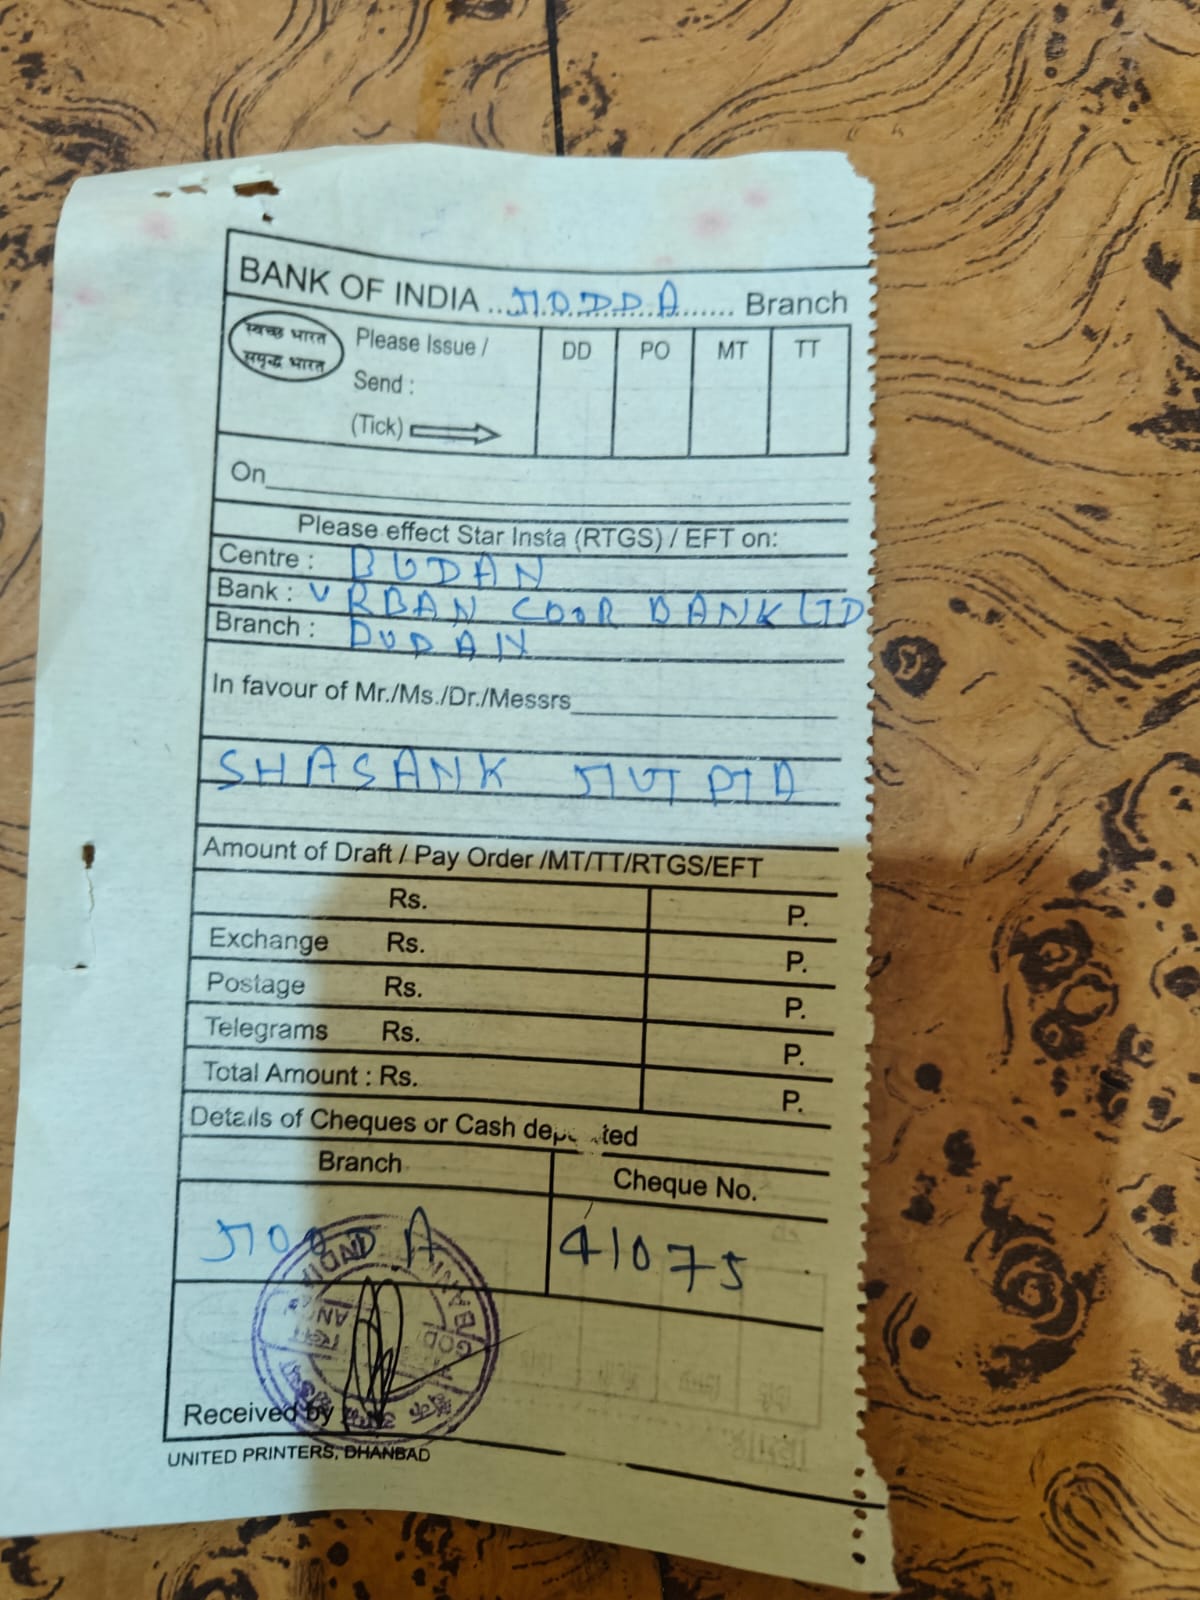 BANK OF INDIA ..GODDA....... Branch
स्वच्छ भारत
समृद्ध भारत
Please Issue /
Send :
(Tick)
DD PO MT TT
On
Please effect Star Insta (RTGS) / EFT on:
Centre : BUDAN
Bank : URBAN COOR BANK LTD
Branch : BUDAN
In favour of Mr./Ms./Dr./Messrs
SHASANK GUPTA
Amount of Draft / Pay Order /MT/TT/RTGS/EFT
Rs. P.
Exchange Rs. P.
Postage Rs. P.
Telegrams Rs. P.
Total Amount : Rs. P.
Details of Cheques or Cash deposited
Branch Cheque No.
GODDA 41075
BANK INDIA
Received by
UNITED PRINTERS, DHANBAD